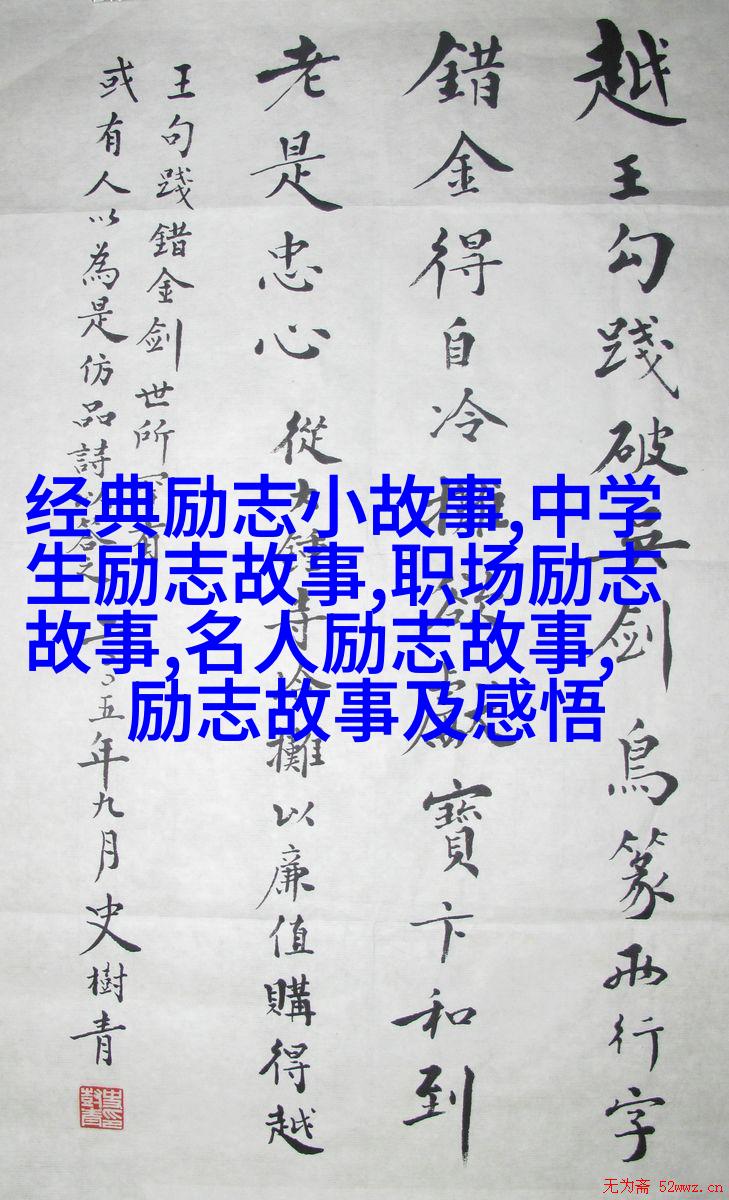 越王勾践破吳剑鳥篆两行字
錯金得自冷攤欲獻寶卞和到
老是忠心 從大鐘寺冷攤以廉值購得越
王句践錯金剑世所罕有
或有人以為是仿品詩以答之 二〇〇五年九月史樹青
经典励志小故事,中学
生励志故事,职场励志
故事,名人励志故事,
励志故事及感悟
无为斋 52wwz.cn